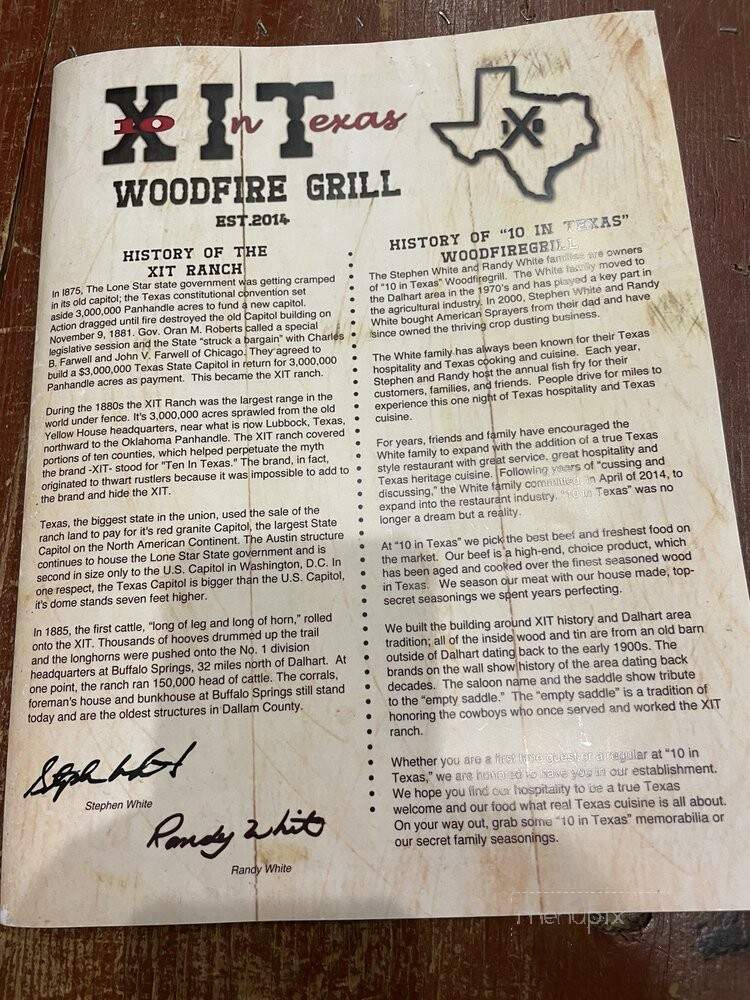 XIT
10 In Texas
WOODFIRE GRILL
EST.2014
X
HISTORY OF THE
XIT RANCH
In 1875, The Lone Star state government was getting cramped
in its old capitol; the Texas constitutional convention set
aside 3,000,000 Panhandle acres to fund a new capitol.
Action dragged until fire destroyed the old Capitol building on
November 9, 1881. Gov. Oran M. Roberts called a special
legislative session and the State "struck a bargain" with Charles
B. Farwell and John V. Farwell of Chicago. They agreed to
build a $3,000,000 Texas State Capitol in return for 3,000,000
Panhandle acres as payment. This became the XIT ranch.
During the 1880s the XIT Ranch was the largest range in the
world under fence. It's 3,000,000 acres sprawled from the old
Yellow House headquarters, near what is now Lubbock, Texas,
northward to the Oklahoma Panhandle. The XIT ranch covered
portions of ten counties, which helped perpetuate the myth
the brand -XIT- stood for "Ten In Texas." The brand, in fact,
originated to thwart rustlers because it was impossible to add to
the brand and hide the XIT.
Texas, the biggest state in the union, used the sale of the
ranch land to pay for it's red granite Capitol, the largest State
Capitol on the North American Continent. The Austin structure
continues to house the Lone Star State government and is
second in size only to the U.S. Capitol in Washington, D.C. In
one respect, the Texas Capitol is bigger than the U.S. Capitol,
it's dome stands seven feet higher.
In 1885, the first cattle, "long of leg and long of horn," rolled
onto the XIT. Thousands of hooves drummed up the trail
and the longhorns were pushed onto the No. 1 division
headquarters at Buffalo Springs, 32 miles north of Dalhart. At
one point, the ranch ran 150,000 head of cattle. The corrals,
foreman's house and bunkhouse at Buffalo Springs still stand
today and are the oldest structures in Dallam County.
Stephen White
Randy White
Randy White
HISTORY OF "10 IN TEXAS"
WOODFIREGRILL
The Stephen White and Randy White families are owners
of "10 in Texas" Woodfiregrill. The White family moved to
the Dalhart area in the 1970's and has played a key part in
the agricultural industry. In 2000, Stephen White and Randy
White bought American Sprayers from their dad and have
since owned the thriving crop dusting business.
The White family has always been known for their Texas
hospitality and Texas cooking and cuisine. Each year,
Stephen and Randy host the annual fish fry for their
customers, families, and friends. People drive for miles to
experience this one night of Texas hospitality and Texas
cuisine.
For years, friends and family have encouraged the
White family to expand with the addition of a true Texas
style restaurant with great service, great hospitality and
Texas heritage cuisine. Following years of "cussing and
discussing," the White family committed in April of 2014, to
expand into the restaurant industry. "10 in Texas" was no
longer a dream but a reality.
At "10 in Texas" we pick the best beef and freshest food on
the market. Our beef is a high-end, choice product, which
has been aged and cooked over the finest seasoned wood
in Texas. We season our meat with our house made, top-
secret seasonings we spent years perfecting.
We built the building around XIT history and Dalhart area
tradition; all of the inside wood and tin are from an old barn
outside of Dalhart dating back to the early 1900s. The
brands on the wall show history of the area dating back
decades. The saloon name and the saddle show tribute
to the "empty saddle." The "empty saddle" is a tradition of
honoring the cowboys who once served and worked the XIT
ranch.
Whether you are a first time guest or a regular at "10 in
Texas," we are honored to have you in our establishment.
We hope you find our hospitality to be a true Texas
welcome and our food what real Texas cuisine is all about.
On your way out, grab some "10 in Texas" memorabilia or
our secret family seasonings.
menupix